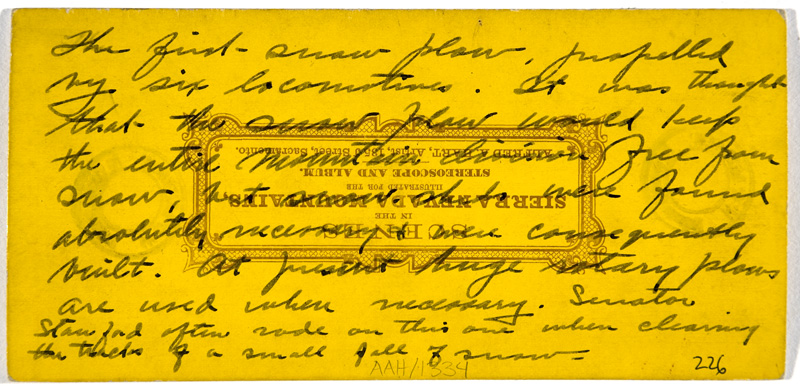 The first snow plow, propelled
by six locomotives. It was thought
that the snow plow would keep
the entire mountain division free from
snow, but snow sheds were found
absolutely necessary & were consequently
built. At present huge rotary plows
are used when necessary. Senator
Stanford often rode on this one when clearing
the tracks of a small fall of snow=
AAH/1334
226
SCENES
IN THE
SIERRA NEVADA MOUNTAINS
ILLUSTRATED FOR THE
STEREOSCOPE AND ALBUM.
ALFRED HART, Artist, 135 J Street, Sacramento.